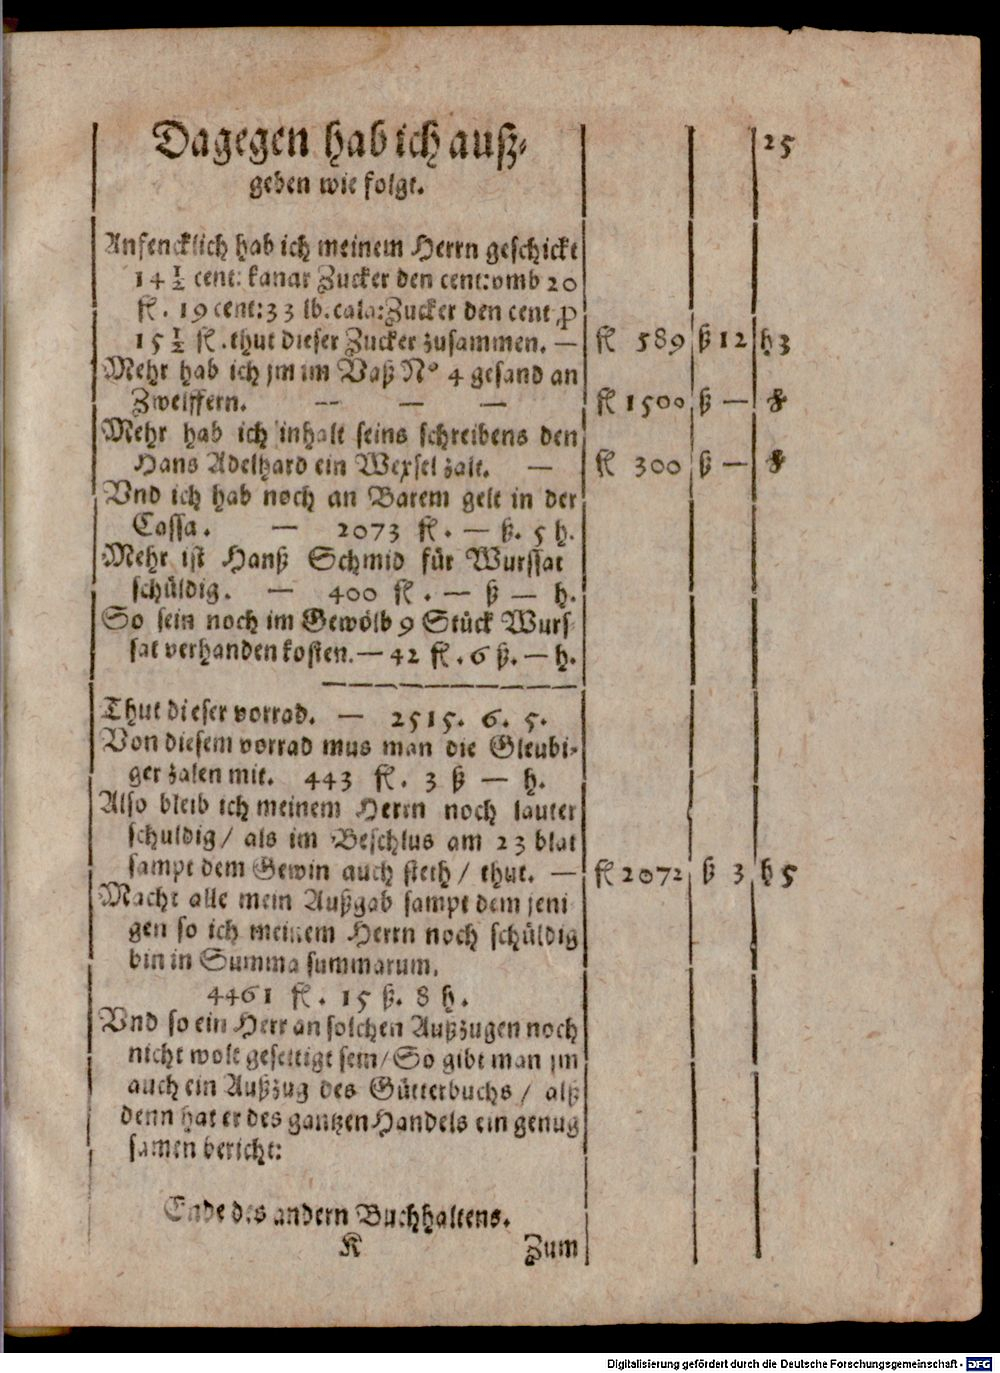 25
Dagegen hab ich auß⸗
geben wie folgt.
Anfencklich hab ich meinem Herrn geschickt
14 ½ cent: kanar Zucker den cent: vmb 20
fl. 19 cent: 33 lb. cala: Zucker den cent ꝓ
15 ½ fl. thut dieser Zucker zusammen. — fl 589 ß 12 h 3
Mehr hab ich jm im Vaß No 4 gesand an
Zwelffern. — — — fl 1500 ß — h
Mehr hab ich inhalt seins schreibens den
Hans Adelhard ein Wexsel zalt. — fl 300 ß — h
Vnd ich hab noch an Barem gelt in der
Cassa. — 2073 fl. — ß. 5 h.
Mehr ist Hanß Schmid für Wurssat
schüldig. — 400 fl. — ß — h.
So sein noch im Gewölb 9 Stück Wurs⸗
sat verhanden kosten. — 42 fl. 6 ß. — h.
Thut dieser vorrad. — 2515. 6. 5.
Von diesem vorrad mus man die Gleubi⸗
ger zalen mit. 443 fl. 3 ß — h.
Also bleib ich meinem Herrn noch lauter
schuldig / als im Beschlus am 23 blat
sampt dem Gewin auch steth / thut. — fl 2072 ß 3 h 5
Macht alle mein Außgab sampt dem jeni
gen so ich meinem Herrn noch schüldig
bin in Summa summarum.
4461 fl. 15 ß. 8 h.
Vnd so ein Herr an solchen Außzugen noch
nicht wolt gesettigt sein / So gibt man jm
auch ein Außzug des Gütterbuchs / alß
denn hat er des gantzen Handels ein genug
samen bericht:
Ende des andern Buchhaltens.
K Zum
Digitalisierung gefördert durch die Deutsche Forschungsgemeinschaft - DFG